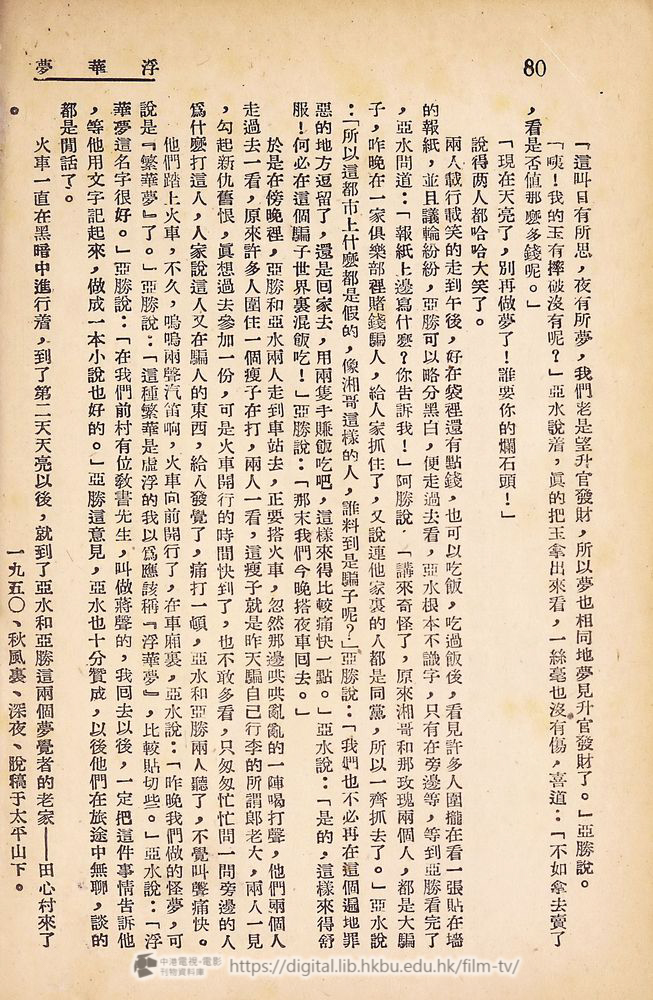 浮華夢
80
「這叫日有所思，夜有所夢，我們老是望升官發財，所以夢也相同地夢見升官發財了。」亞勝說。
「咦！我的玉有摔破沒有呢？」亞水說着，眞的把玉拿出來看，一絲毫也沒有傷，喜道：「不如拿去賣了
，看是否値那麼多錢呢。」
「現在天亮了，別再做夢了！誰要你的爛石頭！」
說得两人都哈哈大笑了。
兩人載行載笑的走到午後，好在袋裡還有點錢，也可以吃飯，吃過飯後，看見許多人圍攏在看一張貼在墻
的報紙，並且議輪紛紛，亞勝可以略分黑白，便走過去看，亞水根本不識字，只有在旁邊等，等到亞勝看完了
，亞水問道：「報紙上邊寫什麼？你告訴我！」阿勝說：「講來奇怪了，原來湘哥和那玫瑰兩個人，都是大騙
子，昨晚在一家俱樂部裡賭錢騙人，給人家抓住了，又說連他家裏的人都是同黨，所以一齊抓去了。」亞水說
：「所以這都市上什麼都是假的，像湘哥這樣的人，誰料到是騙子呢？」亞勝說：「我們也不必再在這個遍地罪
惡的地方逗留了，還是回家去，用兩隻手賺飯吃吧，這樣來得比較痛快一點。」亞水說：「是的，這樣來得舒
服！何必在這個騙子世界裏混飯吃！」亞勝說：「那末我們今晚搭夜車回去。」
於是在傍晚裡，亞勝和亞水兩人走到車站去，正要搭火車，忽然那邊哄哄亂亂的一陣喝打聲，他們兩個人
走過去一看，原來許多人圍住一個瘦子在打，兩人一看，這瘦子就是昨天騙自己行李的所謂郎老大，兩人一見
，勾起新仇舊恨，眞想過去參加一份，可是火車開行的時間快到了，也不敢多看，只匆匆忙忙問一問旁邊的人
爲什麼打這人，人家說這人又在騙人的東西，給人發覺了，痛打一頓，亞水和亞勝兩人聽了，不覺叫聲痛快。
他們踏上火車，不久，嗚嗚兩聲汽笛响，火車向前開行了，在車廂裏，亞水說：「昨晚我們做的怪夢，可
說是『繁華夢』了。」亞勝說：「這種繁華是虛浮的我以爲應該稱『浮華夢』，比較貼切些。」亞水說：「浮
華夢這名字很好。」亞勝說：「在我們前村有位敎書先生，叫做蔣聲的，我回去以後，一定把這件事情告訴他
，等他用文字記起來，做成一本小說也好的。」亞勝這意見，亞水也十分贊成，以後他們在旅途中無聊，談的
都是閒話了。
火車一直在黑暗中進行着，到了第二天天亮以後，就到了亞水和亞勝這兩個夢覺者的老家——田心村來了
。
一九五〇、秋風裏、深夜、脫稿于太平山下。
中港電視・電影
刊物資料庫
https://digital.lib.hkbu.edu.hk/film-tv/